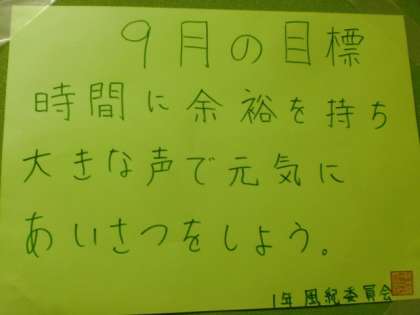 9月の目標
時間に余裕を持ち
大きな声で元気に
あいさつをしよう。
1年 風紀委員会